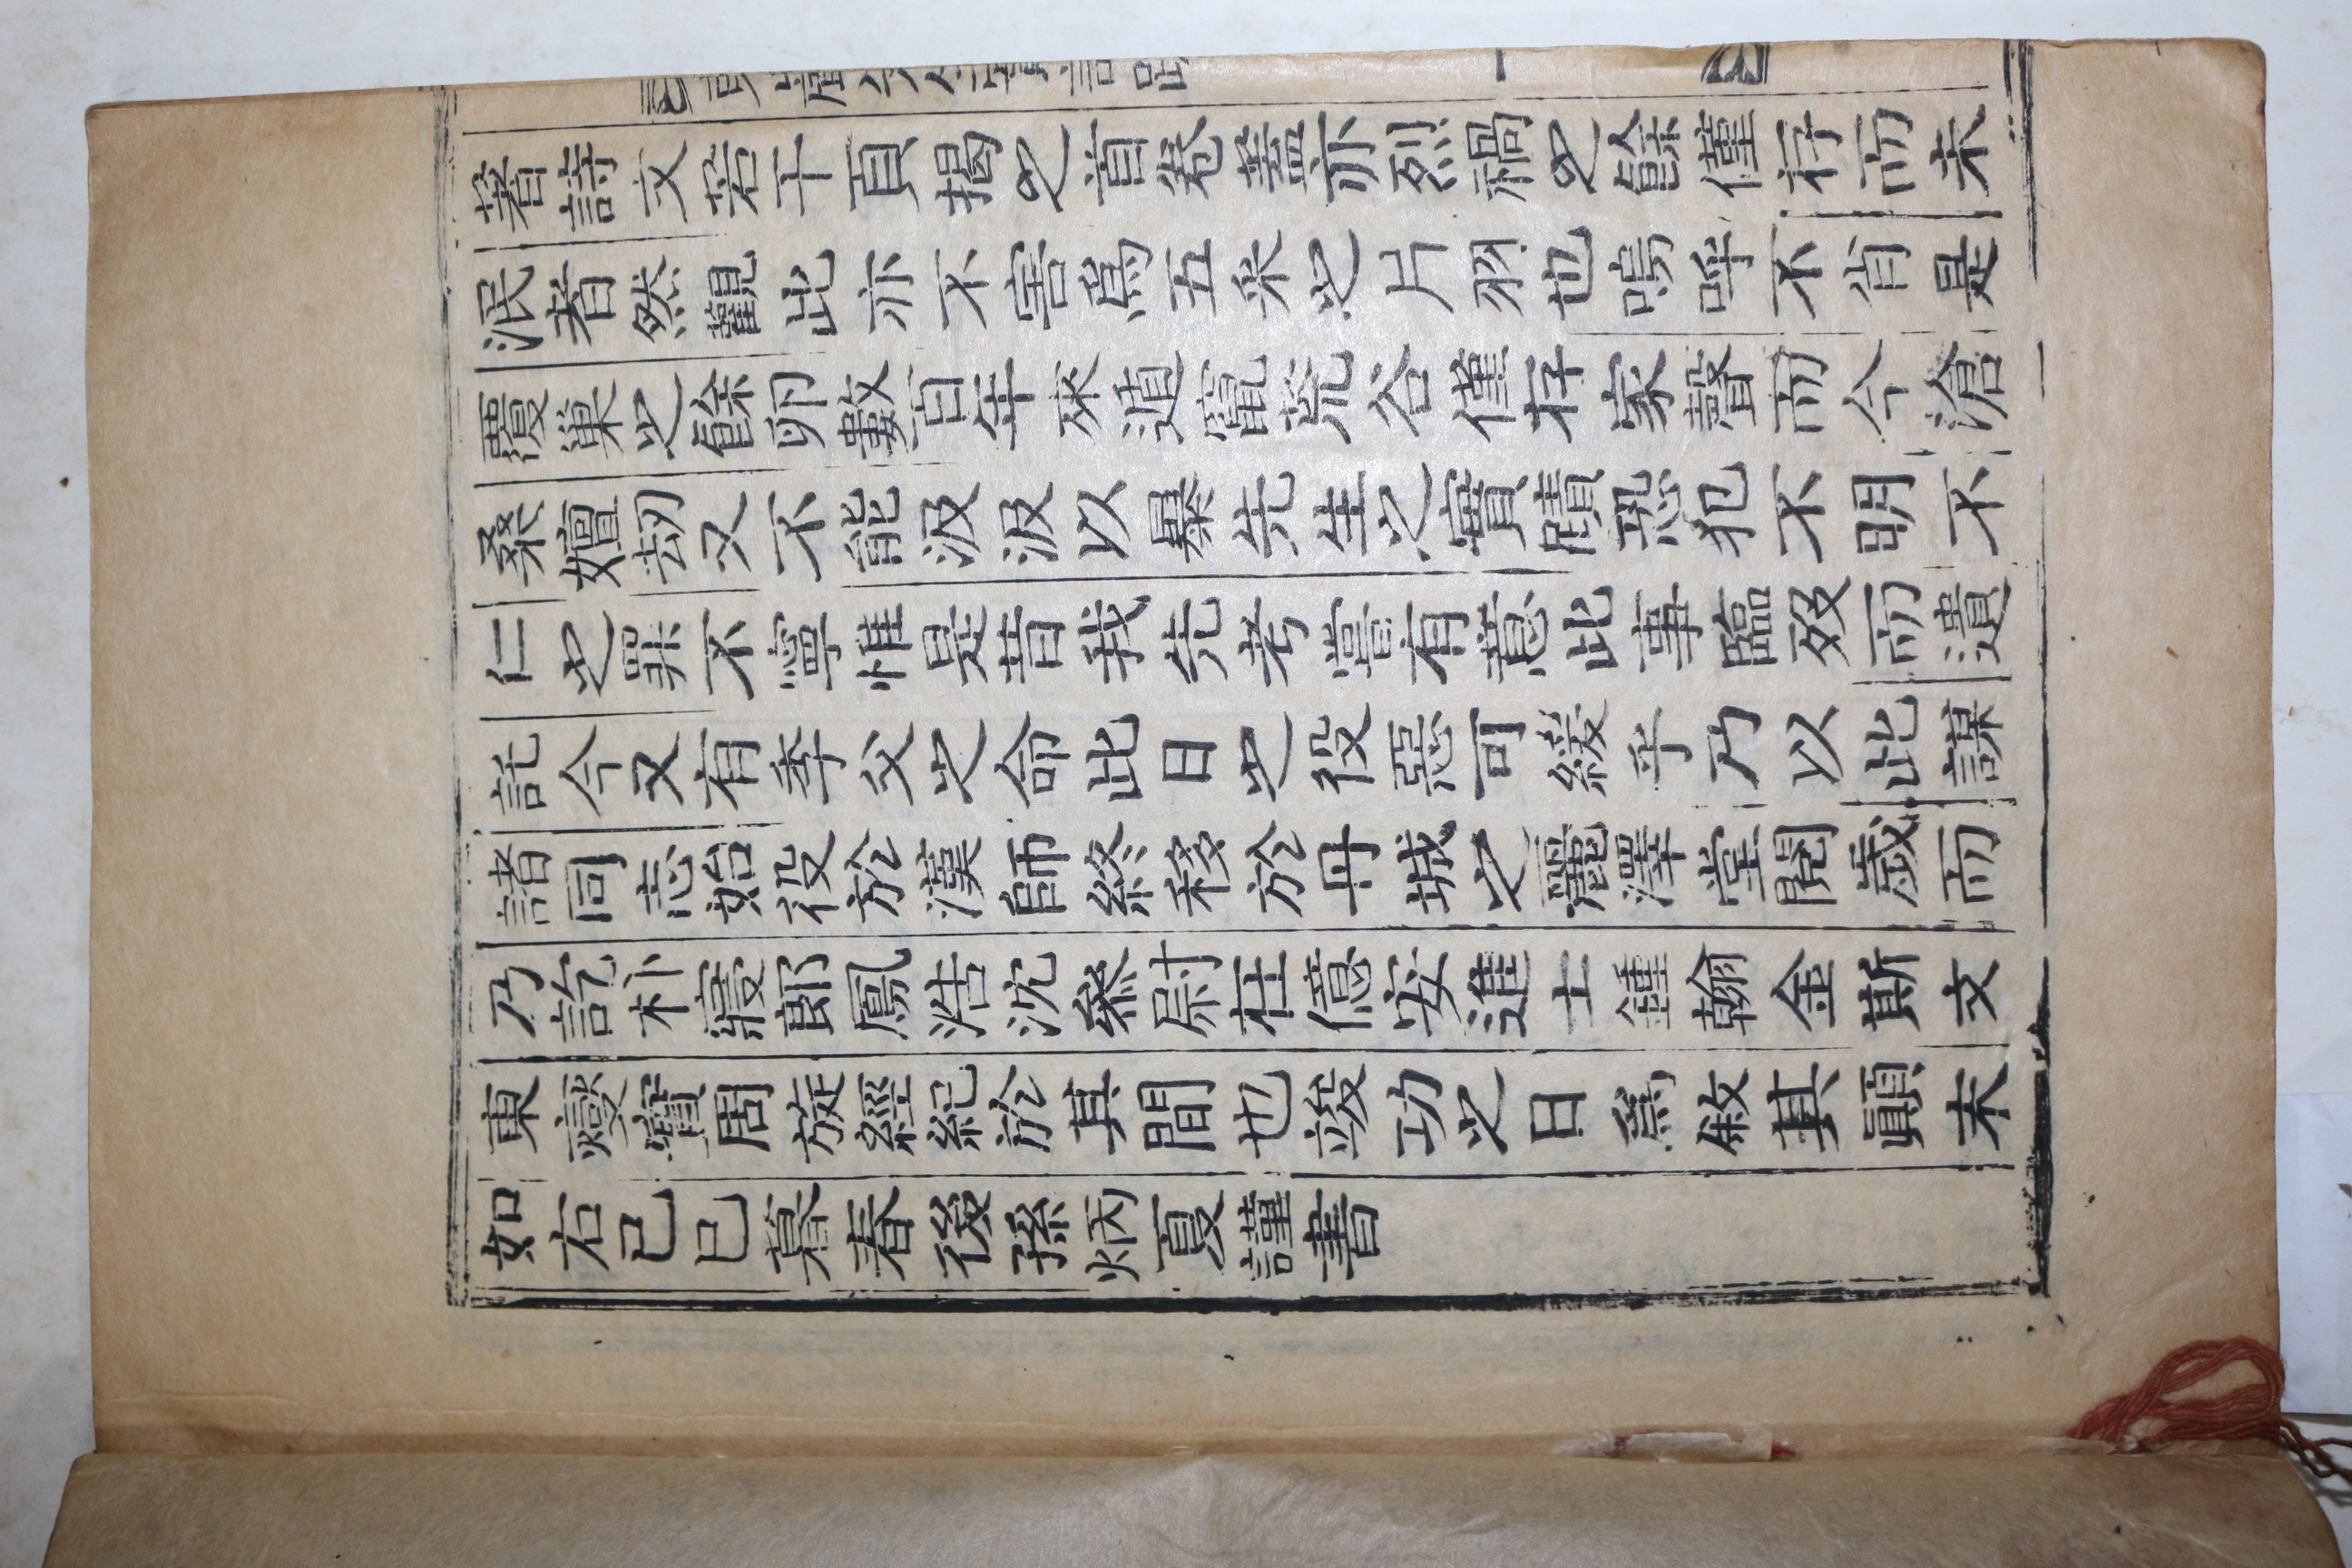 著詩文若干頁揭之首卷蓋亦烈禍之餘僅存而未
泯者然觀此亦不害爲五采之片羽也嗚呼不肖是
覆巢之餘卵數百年來遁竄荒谷僅存家聲而今滄
桑嬗劫又不能汲汲以暴先生之實蹟恐犯不明不
仁之罪不寧惟是昔我先考嘗有意此事臨歿而遺
託今又有季父之命此日之役惡可緩乎乃以此謀
諸同志始役於漢師終移於丹城之麗澤堂閱歲而
乃訖朴寢郞鳳浩沈參尉在億安進士鍾翰金斯文
東燮實周旋經紀於其間也竣功之日爲敘其顚末
如右己巳暮春後孫炳夏謹書